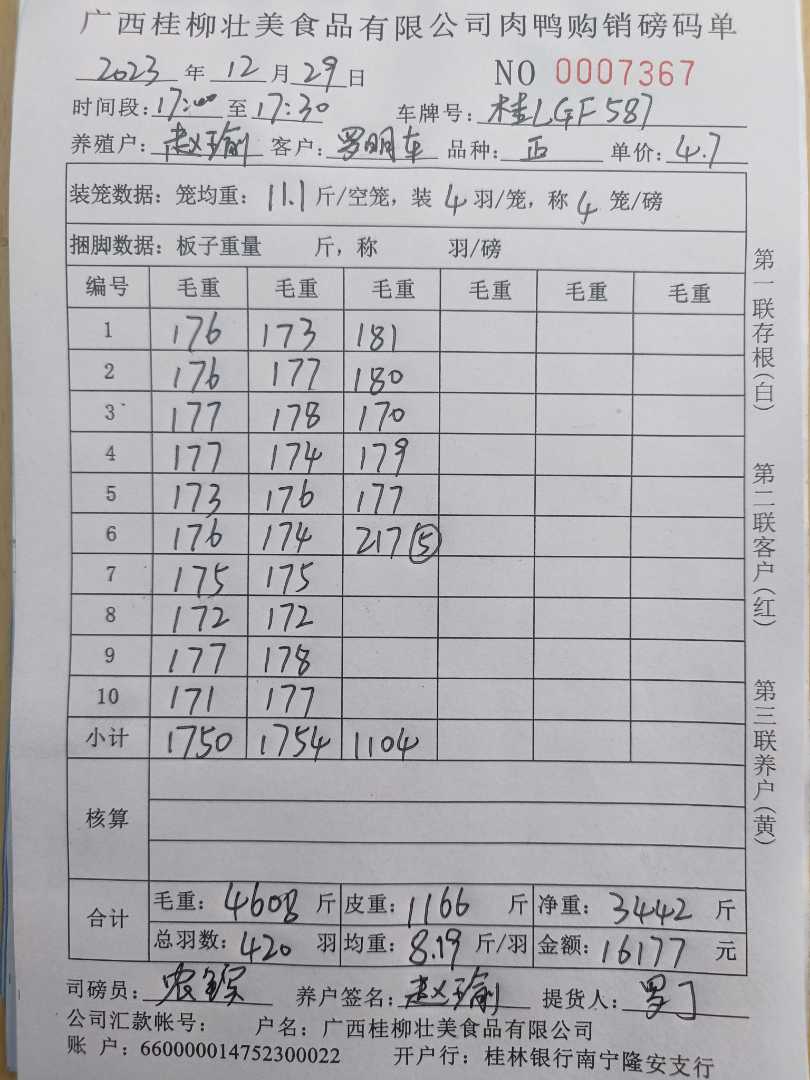 广西桂柳壮美食品有限公司肉鸭购销磅码单
2023 年 12 月 29 日 NO 0007367
时间段: 17:00 至 17:30 车牌号: 桂LGF587
养殖户: 赵瑜 客户: 罗明车 品种: 正 单价: 4.7
装笼数据: 笼均重: 11.1 斤/空笼, 装 4 羽/笼, 称 4 笼/磅
捆脚数据: 板子重量 斤, 称 羽/磅
编号 毛重 毛重 毛重 毛重 毛重 毛重
1 176 173 181
2 176 177 180
3 177 178 170
4 177 174 179
5 173 176 177
6 176 174 217 ⑤
7 175 175
8 172 172
9 177 178
10 171 177
小计 1750 1754 1104
核算
合计 毛重: 4608 斤 皮重: 1166 斤 净重: 3442 斤
总羽数: 420 羽 均重: 8.19 斤/羽 金额: 16177 元
司磅员: 农 养户签名: 赵瑜 提货人: 罗丁
公司汇款帐号: 户名: 广西桂柳壮美食品有限公司
账 户: 660000014752300022 开户行: 桂林银行南宁隆安支行
第一联存根(白) 第二联客户(红) 第三联养户(黄)